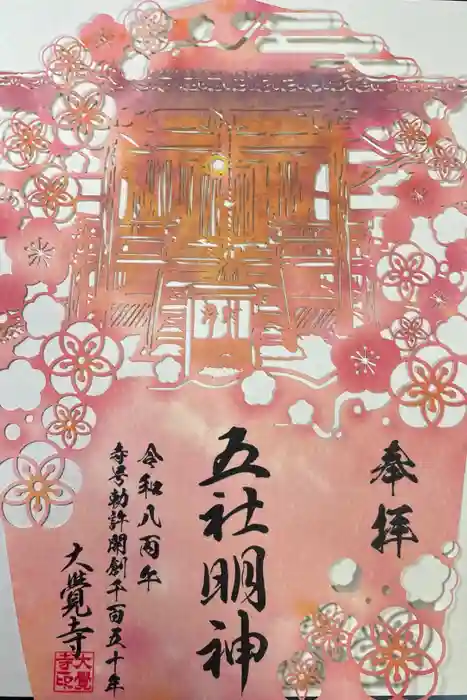 奉拝
五社明神
令和八丙午
寺号勅許開創千百五十年
大覺寺
大覺
寺印